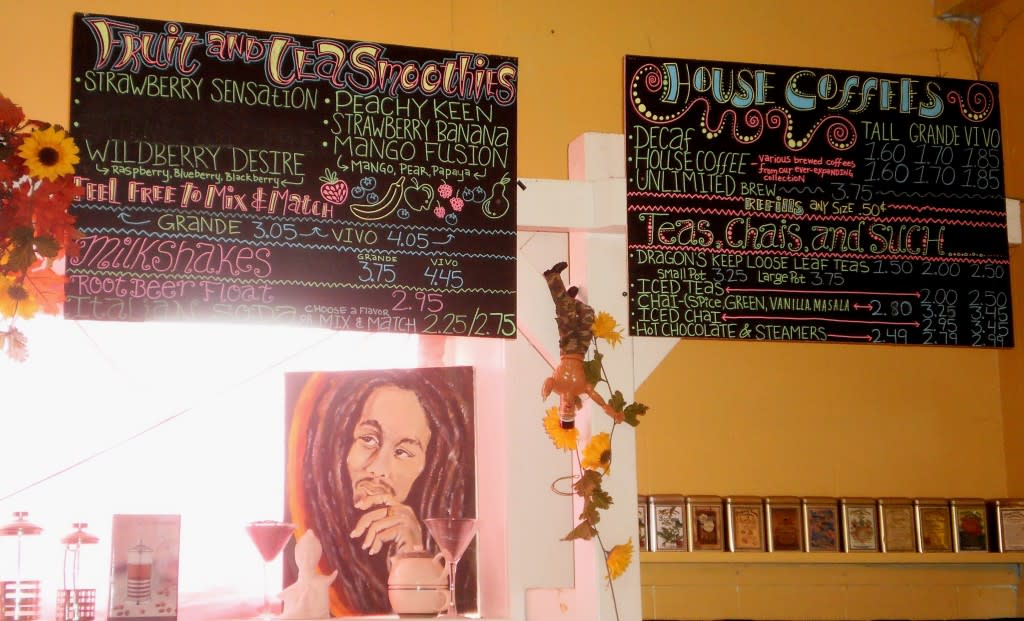 Fruit and Tea Smoothies
• Strawberry Sensation
•
•
Wildberry Desire
Raspberry, Blueberry, Blackberry
• Peachy Keen
Strawberry Banana
Mango Fusion
Mango, Pear, Papaya
Feel Free To Mix & Match
Grande 3.05 Vivo 4.05
Milkshakes Grande 3.75 Vivo 4.45
Root Beer Float 2.95
Italian Soda Choose a Flavor or Mix & Match 2.25/2.75
House Coffees
Tall Grande Vivo
• Decaf 1.60 1.70 1.85
• House Coffee 1.60 1.70 1.85
- Various brewed coffees
from our ever-expanding
collection
• Unlimited Brew 3.75
Refills any size 50¢
Teas, Chais, and Such
Dragon's Keep Loose Leaf Teas 1.50 2.00 2.50
Small Pot 3.25 Large Pot 3.75
Iced Teas 2.00 2.50
Chai-(Spice, Green, Vanilla, Masala 2.80
Iced Chai
Hot Chocolate & Steamers 2.49 2.79 2.99